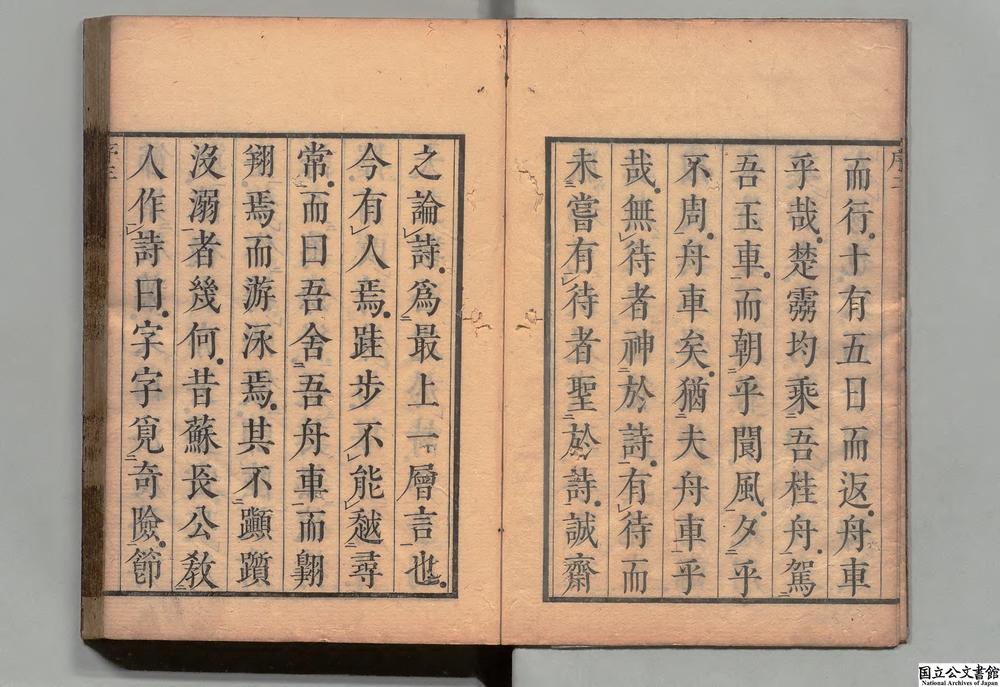 而行十有五日而返舟車
乎哉楚靈均乘吾桂舟駕
吾玉車而朝乎閬風夕乎
不周舟車矣猶夫舟車乎
哉無待者神於詩有待而
未嘗有待者聖於詩誠齋
之論詩爲最上一層言也
今有人焉跬步不能越尋
常而曰吾舍吾舟車而翺
翔焉而游泳焉其不顚躓
沒溺者幾何昔蘇長公教
人作詩曰字字覓奇險節
国立公文書館
National Archives of Japan